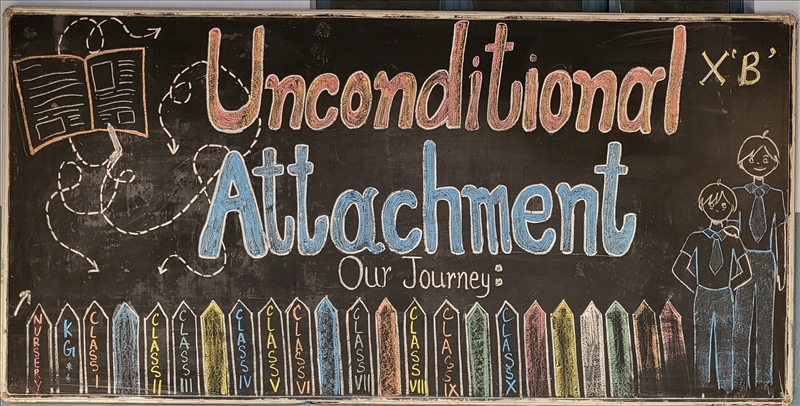 Unconditional X'B'
Attachment
Our Journey:
NURSERY
KG
CLASS I
CLASS II
CLASS III
CLASS IV
CLASS V
CLASS VI
CLASS VII
CLASS VIII
CLASS IX
CLASS X